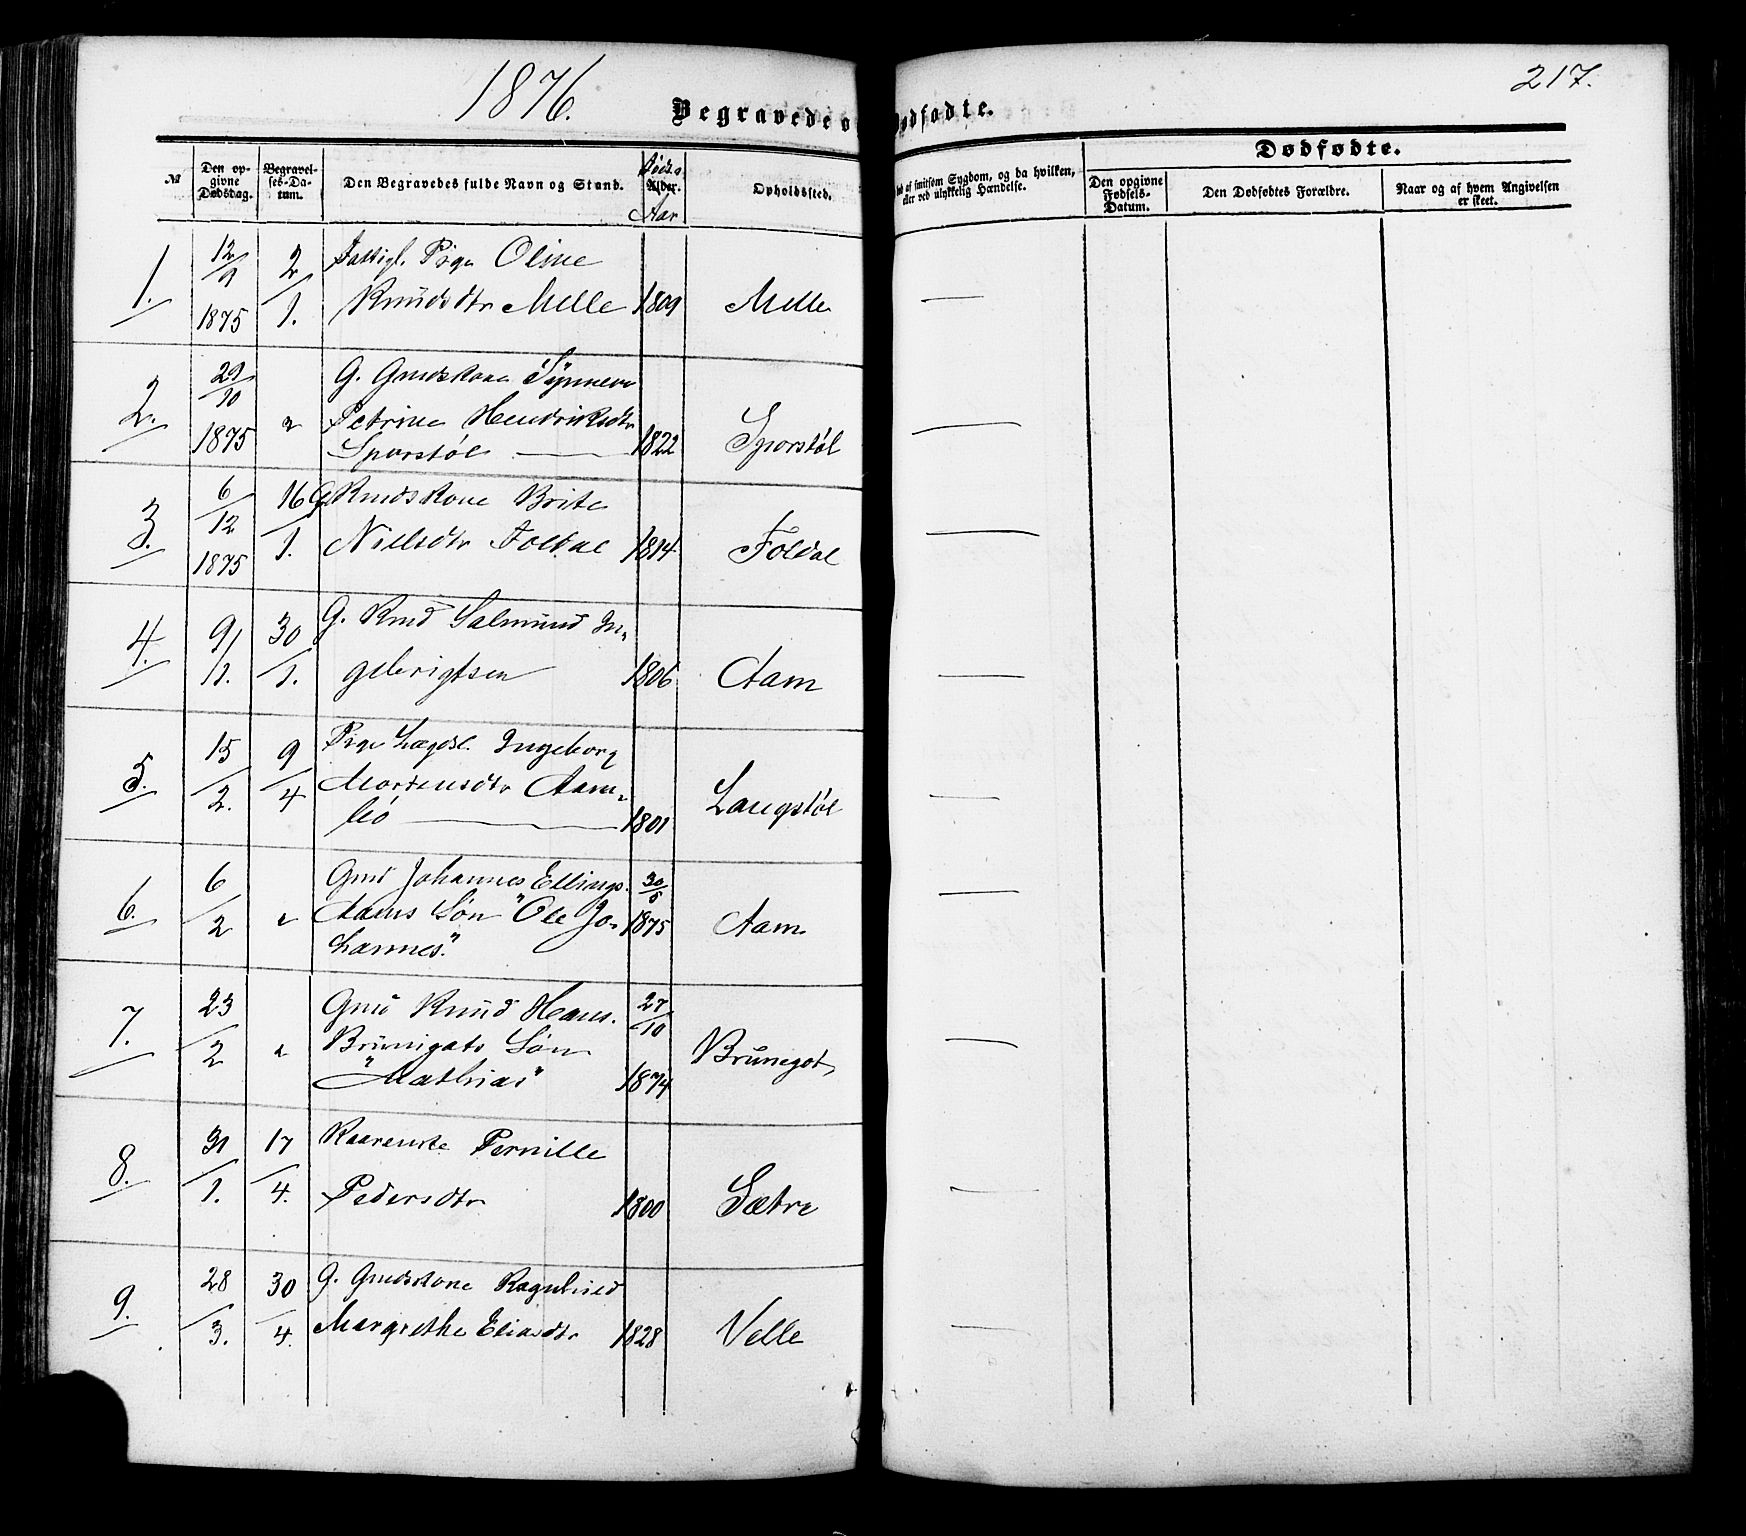 1876.
217.
Begravede o
Dødfødte.
№
Den op-
givne
Dødsdag.
Begravel-
ses-Da-
tum.
Den Begravedes fulde Navn og Stand.
Føds.
Alder.
Aar
Opholdssted.
af smitsom Sygdom, og da hvilken,
eller ved ulykkelig Hændelse.
Dødfødte.
Den opgivne
Fødsels-
Datum.
Den Dødfødtes Forældre.
Naar og af hvem Angivelsen
er skeet.
1. 12/9 1875 2/1. Fattigl. Pige Oline
Knudsdtr Melle 1809 Melle
2. 29/10 1875 " G. Gmdskone Synneve
Petrine Hendriksdtr
Sporstøl 1822 Sporstøl
3. 6/12 1875 16/1. G. Kmdskone Brite
Nielsdtr Foldal 1814 Foldal
4. 9/1. 30/1. G. Kmd Salmund In-
gebrigtsen 1806 Aam
5. 15/2. 9/4 Pige Lægdsl. Ingeborg
Mortensdtr Aam-
lió 1801 Langstøl
6. 6/2 " Gmd Johannes Ellings.
Aams Søn "Ole Jo-
hannes." 30/5 1875 Aam
7. 23/2 " Gmd Knud Hans.
Brünigats Søn
"Mathias" 27/10 1874 Brünegot
8. 31/1. 17/4. Kaarenke Pernille
Pedersdtr 1800 Sætre
9. 28/3. 30/4. G. Gmdskone Ragnhild
Margrethe Eliasdtr 1828 Velle